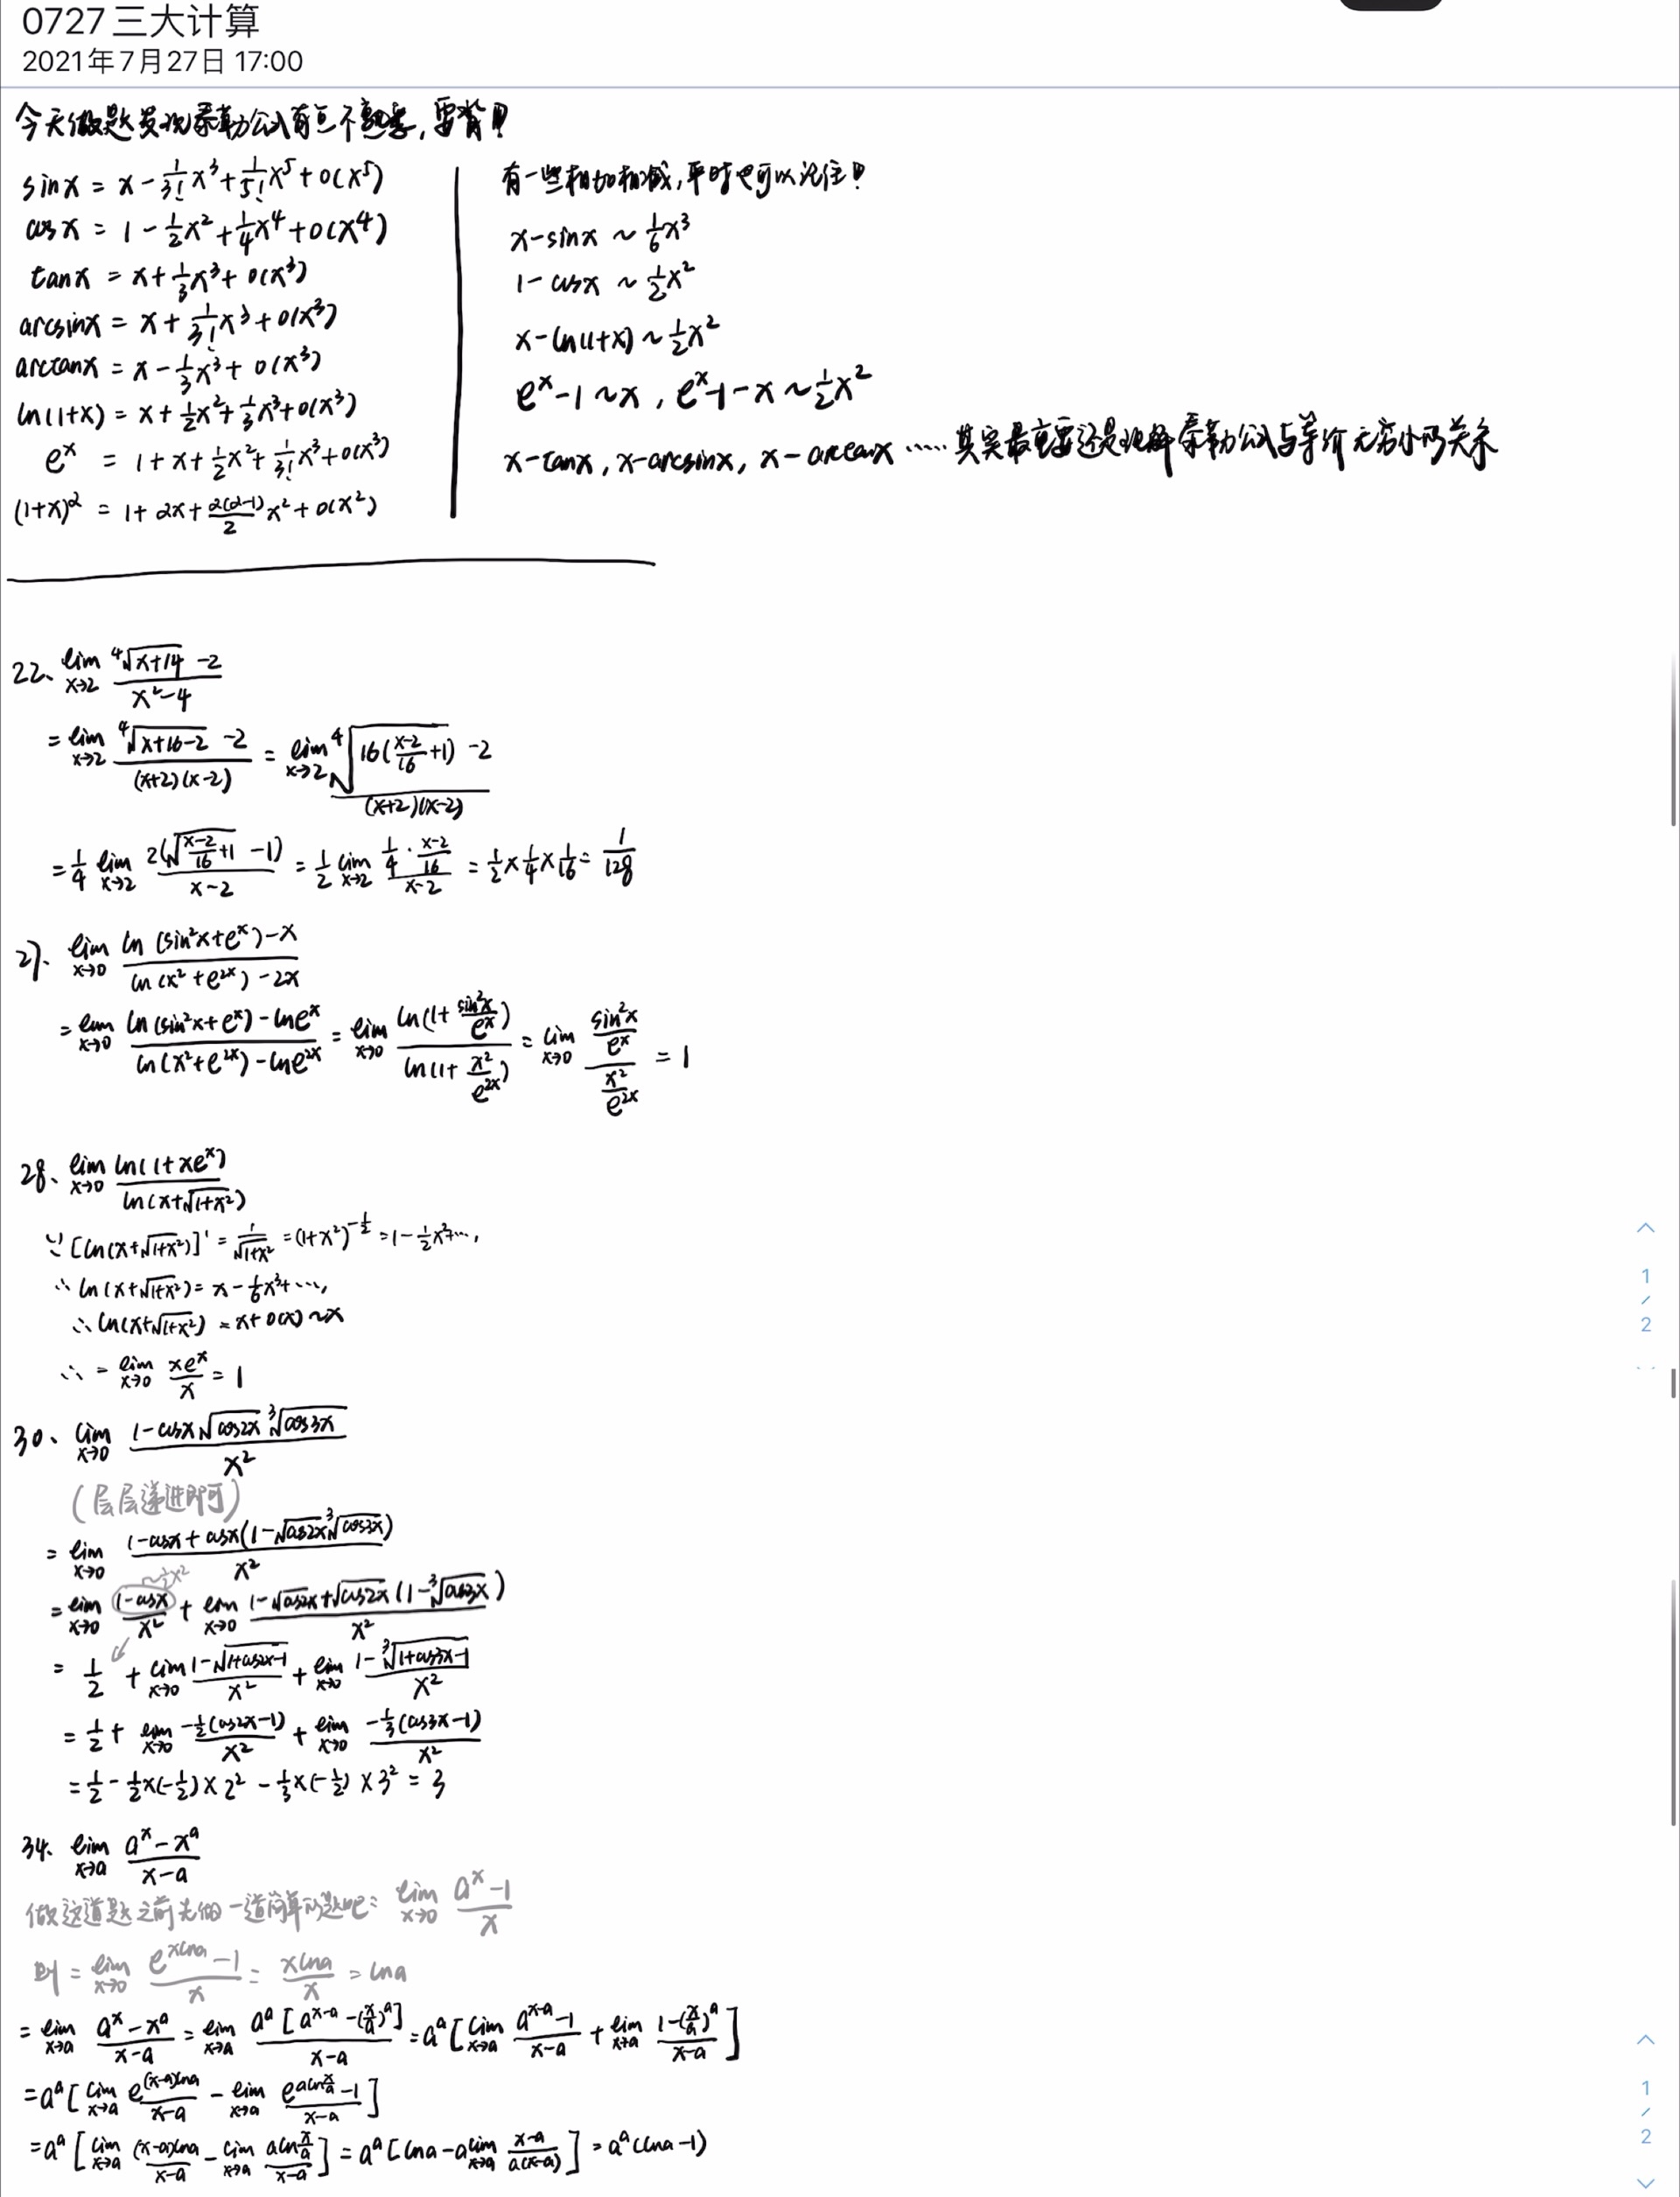 0727 三大计算
2021年7月27日 17:00
今天做题发现泰勒公式有点不熟悉,要背!
sinx = x - 1/3! x³ + 1/5! x⁵ + o(x⁵)
cosx = 1 - 1/2 x² + 1/4 x⁴ + o(x⁴)
tanx = x + 1/3 x³ + o(x³)
arcsinx = x + 1/3! x³ + o(x³)
arctanx = x - 1/3 x³ + o(x³)
ln(1+x) = x + 1/2 x² + 1/3 x³ + o(x³)
eˣ = 1 + x + 1/2 x² + 1/3! x³ + o(x³)
(1+x)^α = 1 + αx + α(α-1)/2 x² + o(x²)
有一些相加相减,平时也可以记住!
x - sinx ~ 1/6 x³
1 - cosx ~ 1/2 x²
x - ln(1+x) ~ 1/2 x²
eˣ - 1 ~ x , eˣ - 1 - x ~ 1/2 x²
x - tanx, x - arcsinx, x - arctanx ····· 其实最重要还是理解泰勒公式与等价无穷小的关系
22、lim x→2 (⁴√(x+14) - 2)/(x²-4)
= lim x→2 (⁴√(x+16-2) - 2)/((x+2)(x-2)) = lim x→2 (⁴√(16((x-2)/16 + 1)) - 2)/((x+2)(x-2))
= 1/4 lim x→2 2(√((x-2)/16 + 1) - 1)/(x-2) = 1/2 lim x→2 (1/4 · (x-2)/16)/(x-2) = 1/2 × 1/4 × 1/16 = 1/128
27、lim x→0 (ln(sin²x+eˣ) - x)/(ln(x²+e²ˣ) - 2x)
= lim x→0 (ln(sin²x+eˣ) - lneˣ)/(ln(x²+e²ˣ) - lne²ˣ) = lim x→0 ln(1 + sin²x/eˣ)/ln(1 + x²/e²ˣ) = lim x→0 (sin²x/eˣ)/(x²/e²ˣ) = 1
28、lim x→0 ln(1+xeˣ)/ln(x+√(1+x²))
∵ [ln(x+√(1+x²))]' = 1/√(1+x²) = (1+x²)^(-1/2) = 1 - 1/2 x² + ···,
∴ ln(x+√(1+x²)) = x - 1/6 x³ + ···,
∴ ln(x+√(1+x²)) = x + o(x) ~ x
∴ = lim x→0 xeˣ/x = 1
30、lim x→0 (1 - cosx √cos2x ³√cos3x)/x²
(层层递进即可)
= lim x→0 (1 - cosx + cosx(1 - √cos2x ³√cos3x))/x²
~ 1/2 x²
= lim x→0 (1 - cosx)/x² + lim x→0 (1 - √cos2x + √cos2x (1 - ³√cos3x))/x²
= 1/2 + lim x→0 (1 - √(1+cos2x-1))/x² + lim x→0 (1 - ³√(1+cos3x-1))/x²
= 1/2 + lim x→0 (-1/2(cos2x-1))/x² + lim x→0 (-1/3(cos3x-1))/x²
= 1/2 - 1/2 × (-1/2) × 2² - 1/3 × (-1/2) × 3² = 3
34、lim x→a (aˣ - xᵃ)/(x-a)
做这道题之前先做一道简单的题吧: lim x→0 (aˣ - 1)/x
则 = lim x→0 (e^(xlna) - 1)/x = xlna/x = lna
= lim x→a (aˣ - xᵃ)/(x-a) = lim x→a aᵃ[a^(x-a) - (x/a)ᵃ]/(x-a) = aᵃ[lim x→a (a^(x-a) - 1)/(x-a) + lim x→a (1 - (x/a)ᵃ)/(x-a)]
= aᵃ[lim x→a e^((x-a)lna)/(x-a) - lim x→a (e^(aln x/a) - 1)/(x-a)]
= aᵃ[lim x→a (x-a)lna/(x-a) - lim x→a (aln x/a)/(x-a)] = aᵃ[lna - a lim x→a (x-a)/(a(x-a))] = aᵃ(lna - 1)
1
/
2
1
/
2